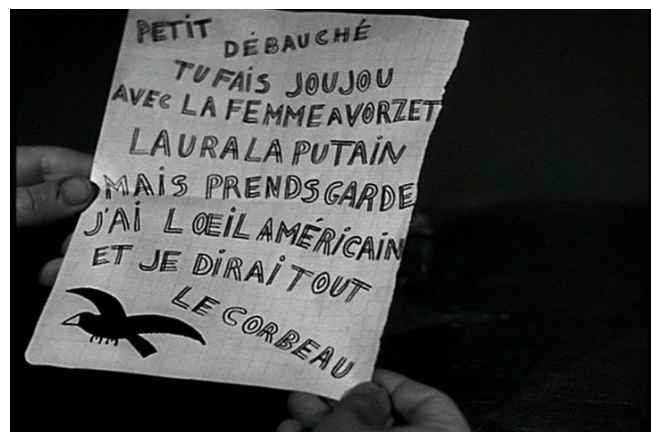 PETIT DÉBAUCHÉ
TU FAIS JOUJOU
AVEC LA FEMME A VORZET
LAURA LA PUTAIN
MAIS PRENDS GARDE
J'AI L ŒIL AMÉRICAIN
ET JE DIRAI TOUT
LE CORBEAU